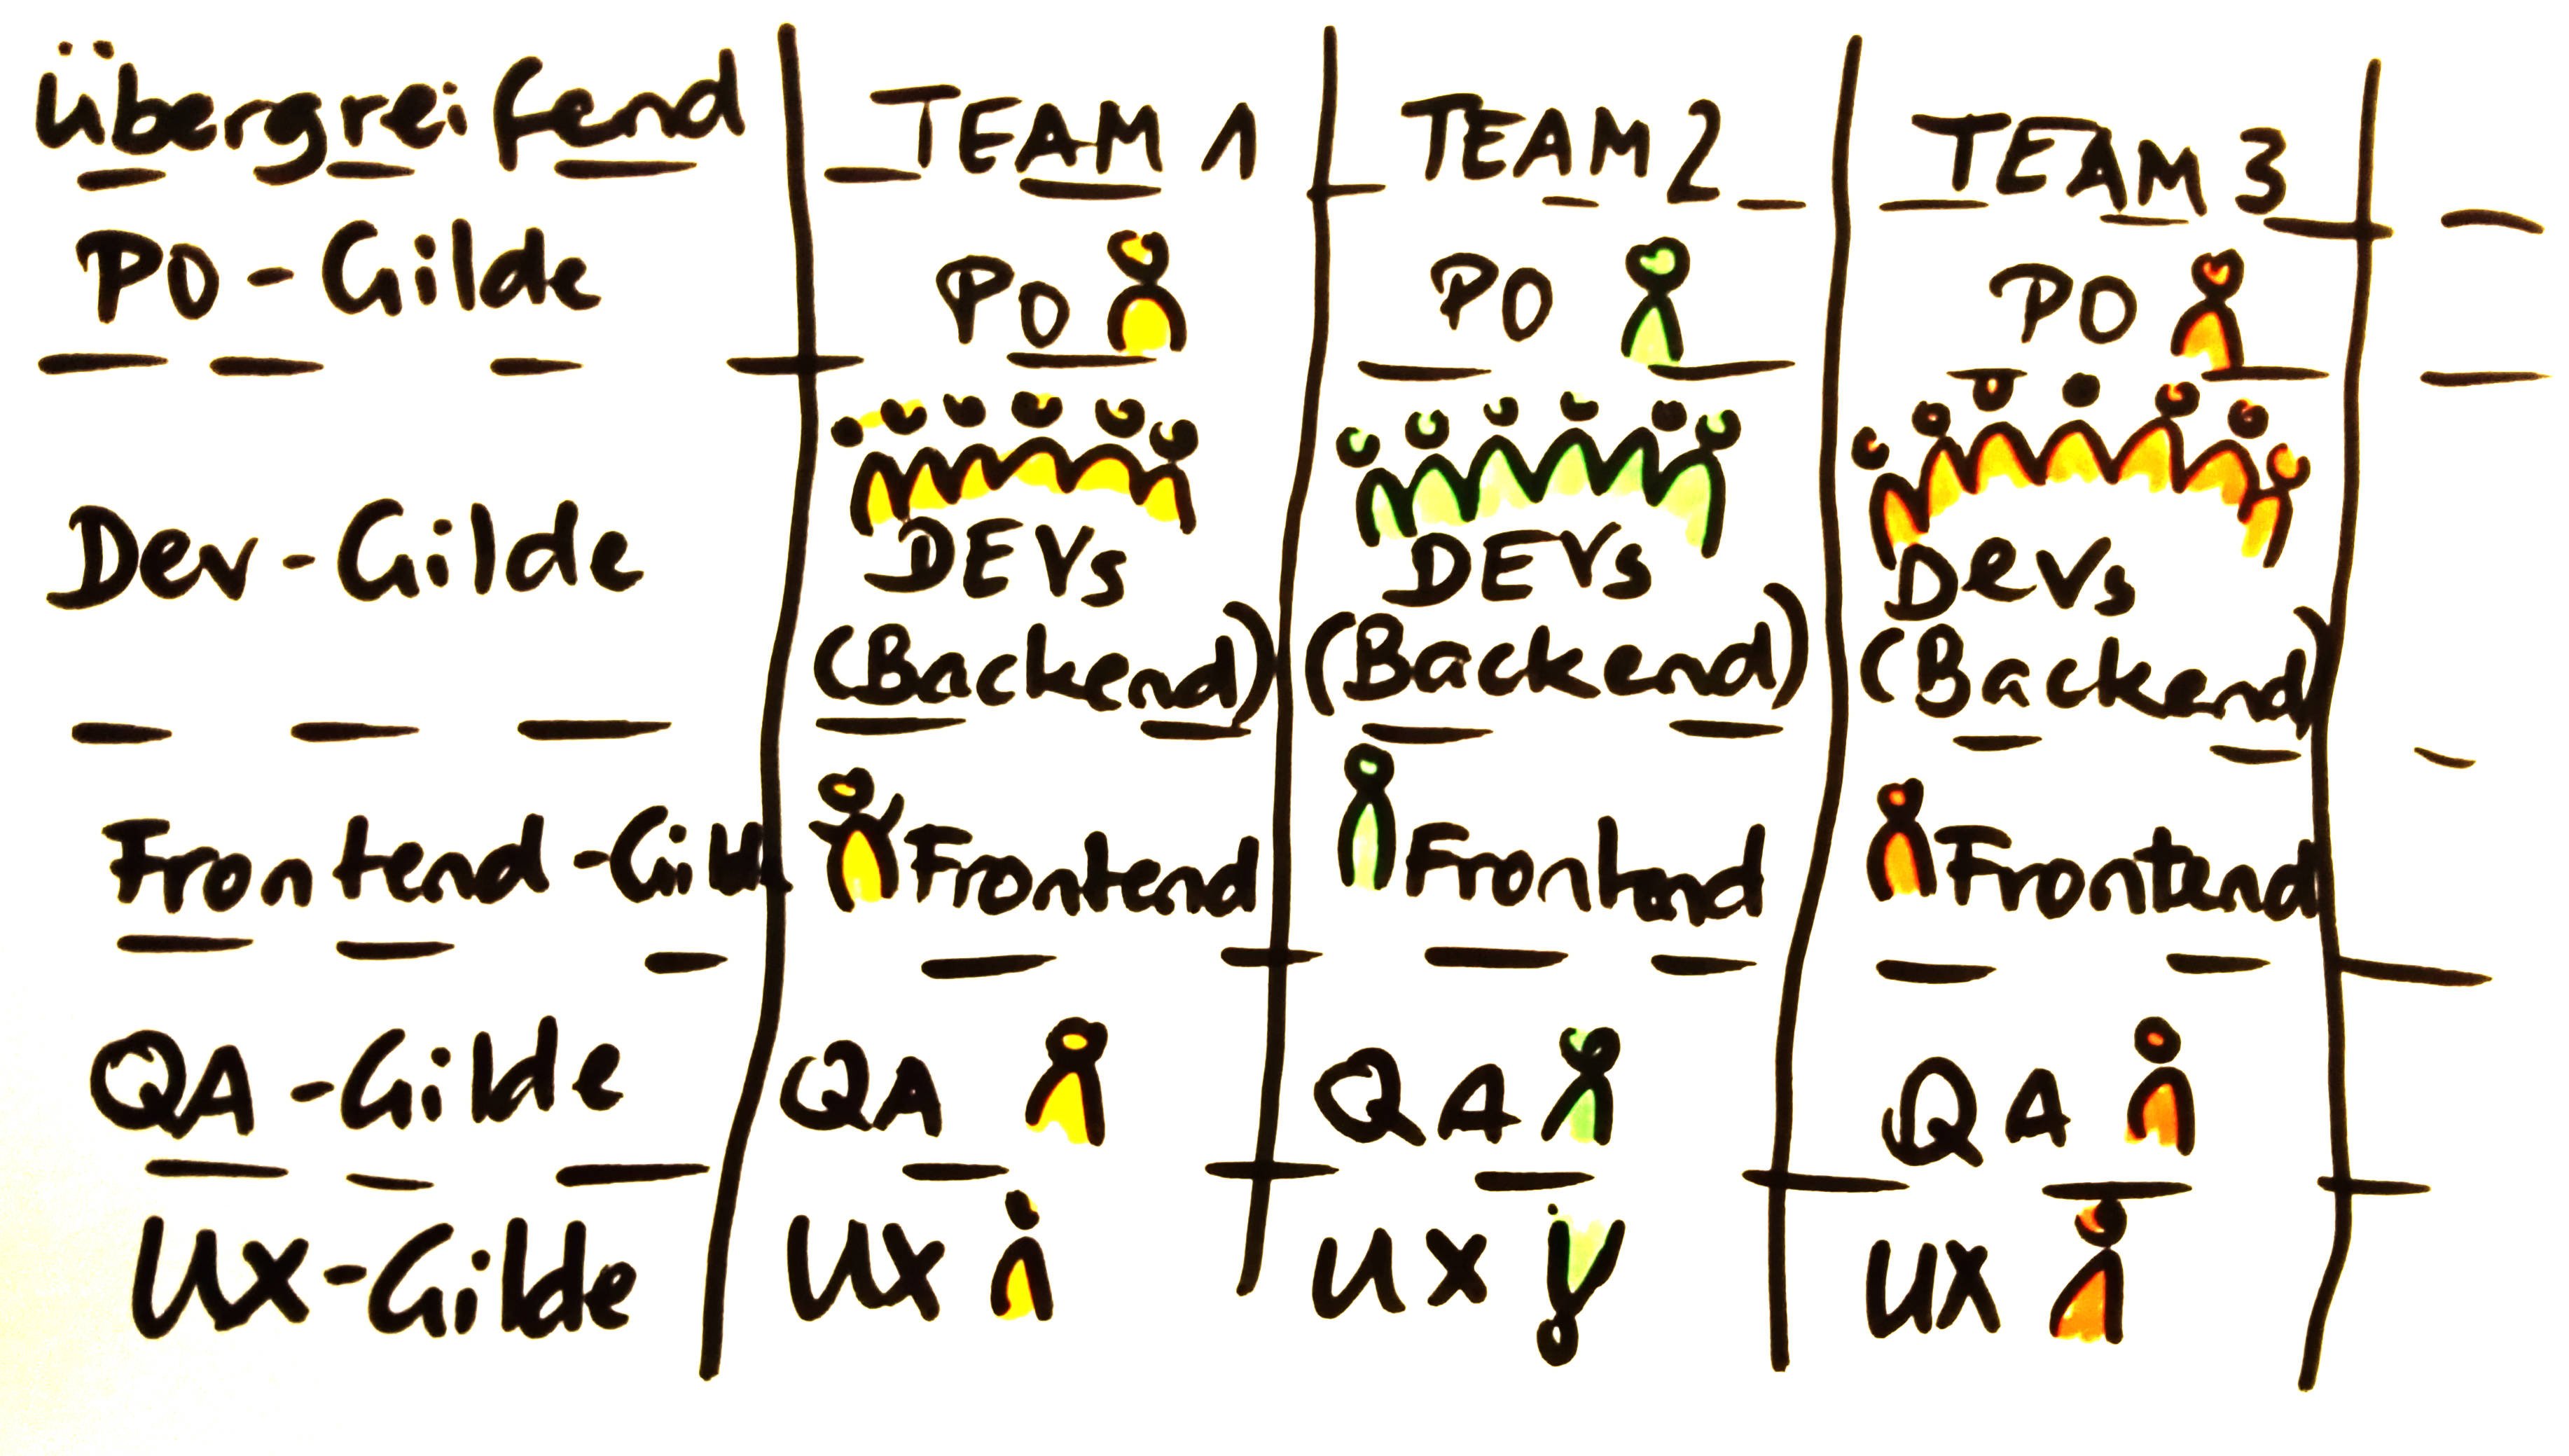 übergreifend TEAM 1 TEAM 2 TEAM 3
PO-Gilde PO PO PO
Dev-Gilde DEVs DEVs DeVs
(Backend) (Backend) (Backend)
Frontend-Gild Frontend Frontend Frontend
QA-Gilde QA QA QA
UX-Gilde UX UX UX